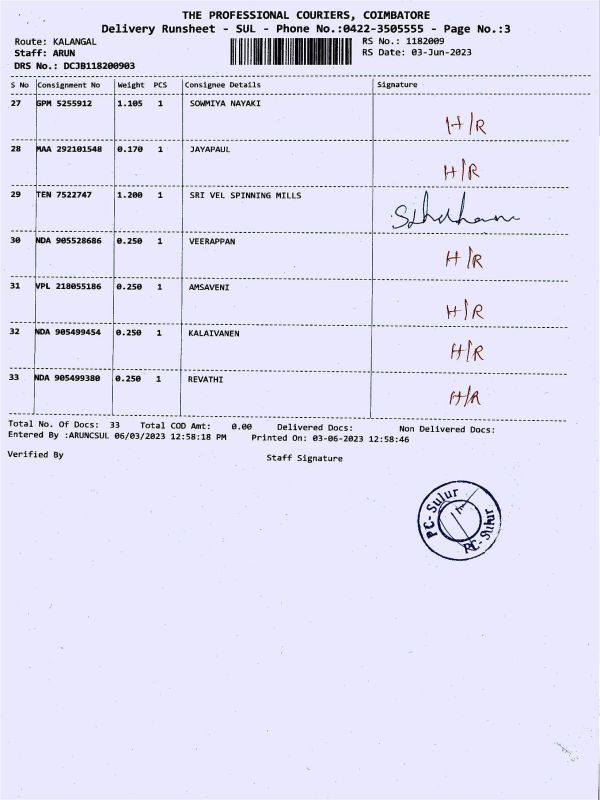 THE PROFESSIONAL COURIERS, COIMBATORE
Delivery Runsheet - SUL - Phone No.:0422-3505555 - Page No.:3
Route: KALANGAL RS No.: 1182009
Staff: ARUN RS Date: 03-Jun-2023
DRS No.: DCJB118200903
S No Consignment No Weight PCS Consignee Details Signature
27 GPM 5255912 1.105 1 SOWMIYA NAYAKI
H/R
28 MAA 292101548 0.170 1 JAYAPAUL
H/R
29 TEN 7522747 1.200 1 SRI VEL SPINNING MILLS
30 NDA 905528686 0.250 1 VEERAPPAN
H/R
31 VPL 218055186 0.250 1 AMSAVENI
H/R
32 NDA 905499454 0.250 1 KALAIVANEN
H/R
33 NDA 905499380 0.250 1 REVATHI
H/R
Total No. Of Docs: 33 Total COD Amt: 0.00 Delivered Docs: Non Delivered Docs:
Entered By :ARUNCSUL 06/03/2023 12:58:18 PM Printed On: 03-06-2023 12:58:46
Verified By Staff Signature
PC-Sulur
PC-Sulur